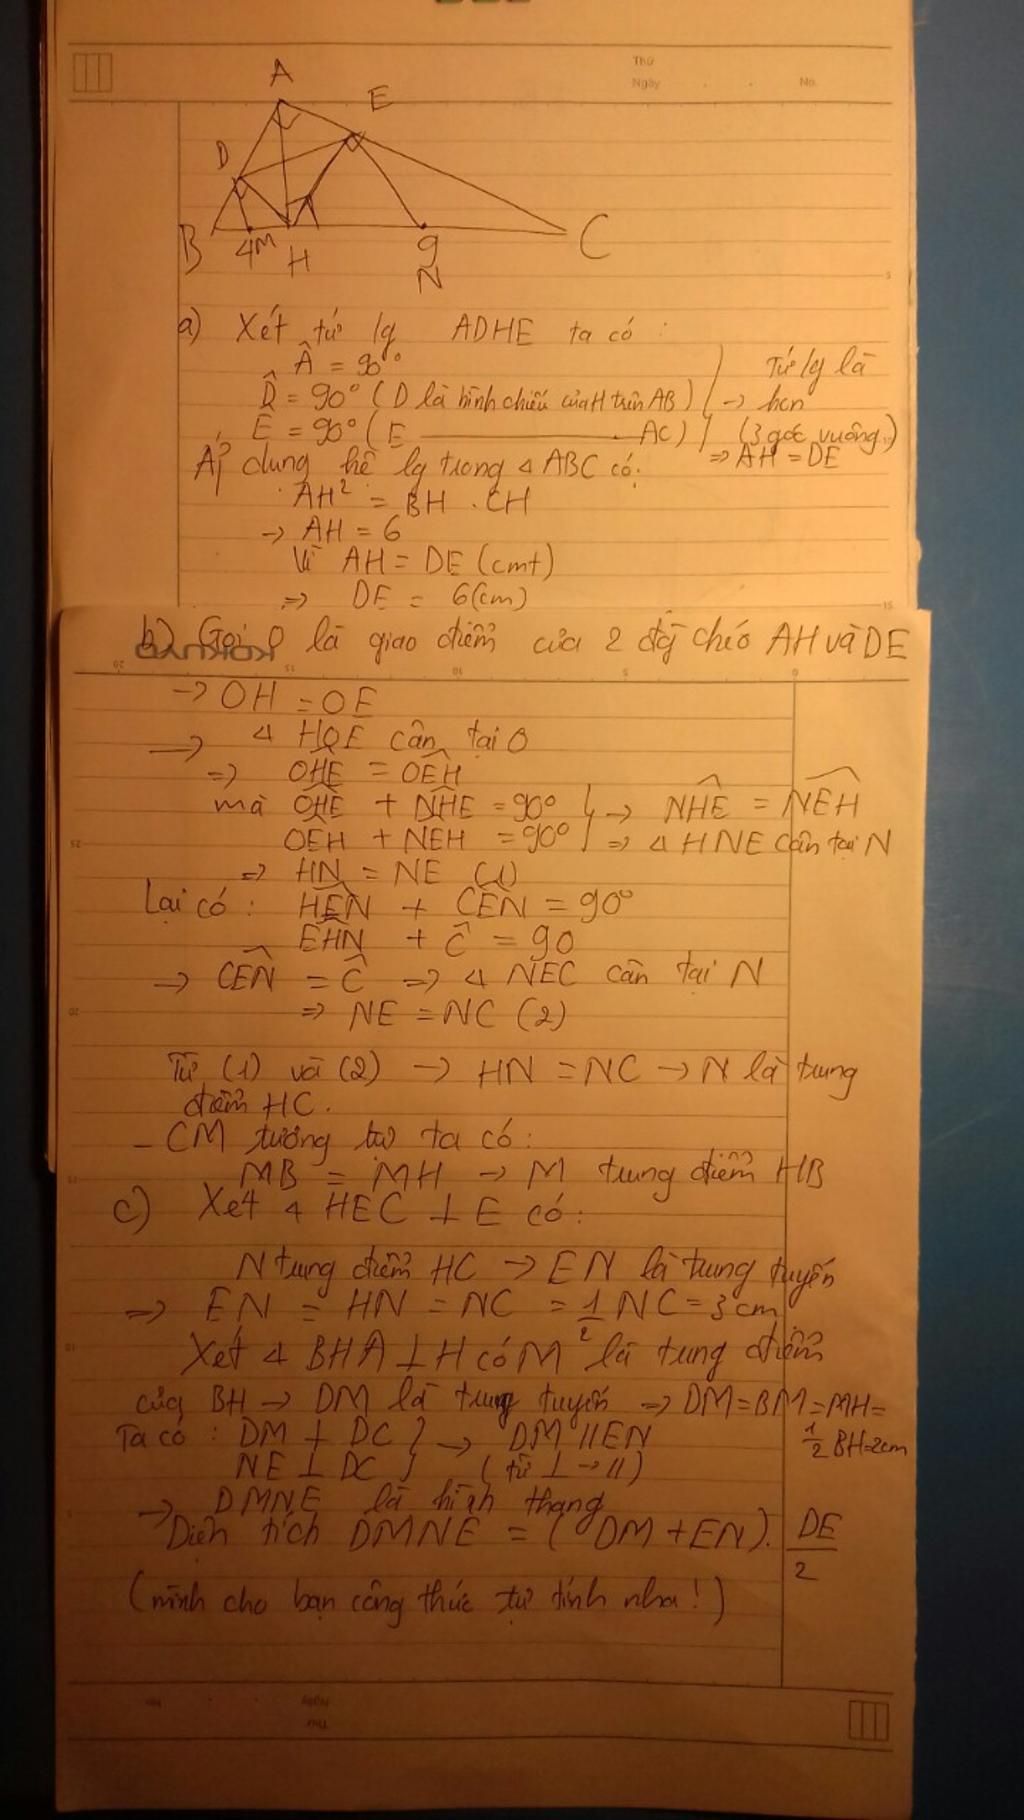 Thứ
Ngày . . No.
A
E
D
B 4 M H 9 C
N
a) Xét tứ lg ADHE ta có :
Â = 90°
D̂ = 90° (D là hình chiếu của H trên AB) Tứ lg là
→ hcn
Ê = 90° (E ——— AC) (3 góc vuông)
⇒ AH = DE
Áp dụng hệ lg trong △ ABC có:
AH² = BH . CH
→ AH = 6
Vì AH = DE (cmt)
⇒ DE = 6 (cm)
b) Gọi O là giao điểm của 2 đg chéo AH và DE
KOKUYO
→ OH = OE
→ △ HOE cân tại O
⇒ OHE = OEH
mà OHE + NHE = 90° → NHE = NEH
OEH + NEH = 90° ⇒ △ HNE cân tại N
⇒ HN = NE (1)
Lại có : HEN + CEN = 90°
EHN + Ĉ = 90
→ CEN = Ĉ ⇒ △ NEC cân tại N
⇒ NE = NC (2)
Từ (1) và (2) → HN = NC → N là trung
điểm HC.
- CM tương tự ta có :
MB = MH → M trung điểm HB
c) Xét △ HEC ⊥ E có :
N trung điểm HC → EN là trung tuyến
⇒ EN = HN = NC = 1/2 NC = 3 cm
Xét △ BHA ⊥ H có M là trung điểm
của BH → DM là trung tuyến ⇒ DM = BM = MH =
1/2 BH = 2cm
Ta có : DM ⊥ DC } → DM // EN
NE ⊥ DC } (từ ⊥ → //)
→ DMNE là hình thang
Diện tích DMNE = (DM + EN). DE/2
(mình cho bạn công thức tự tính nha!)